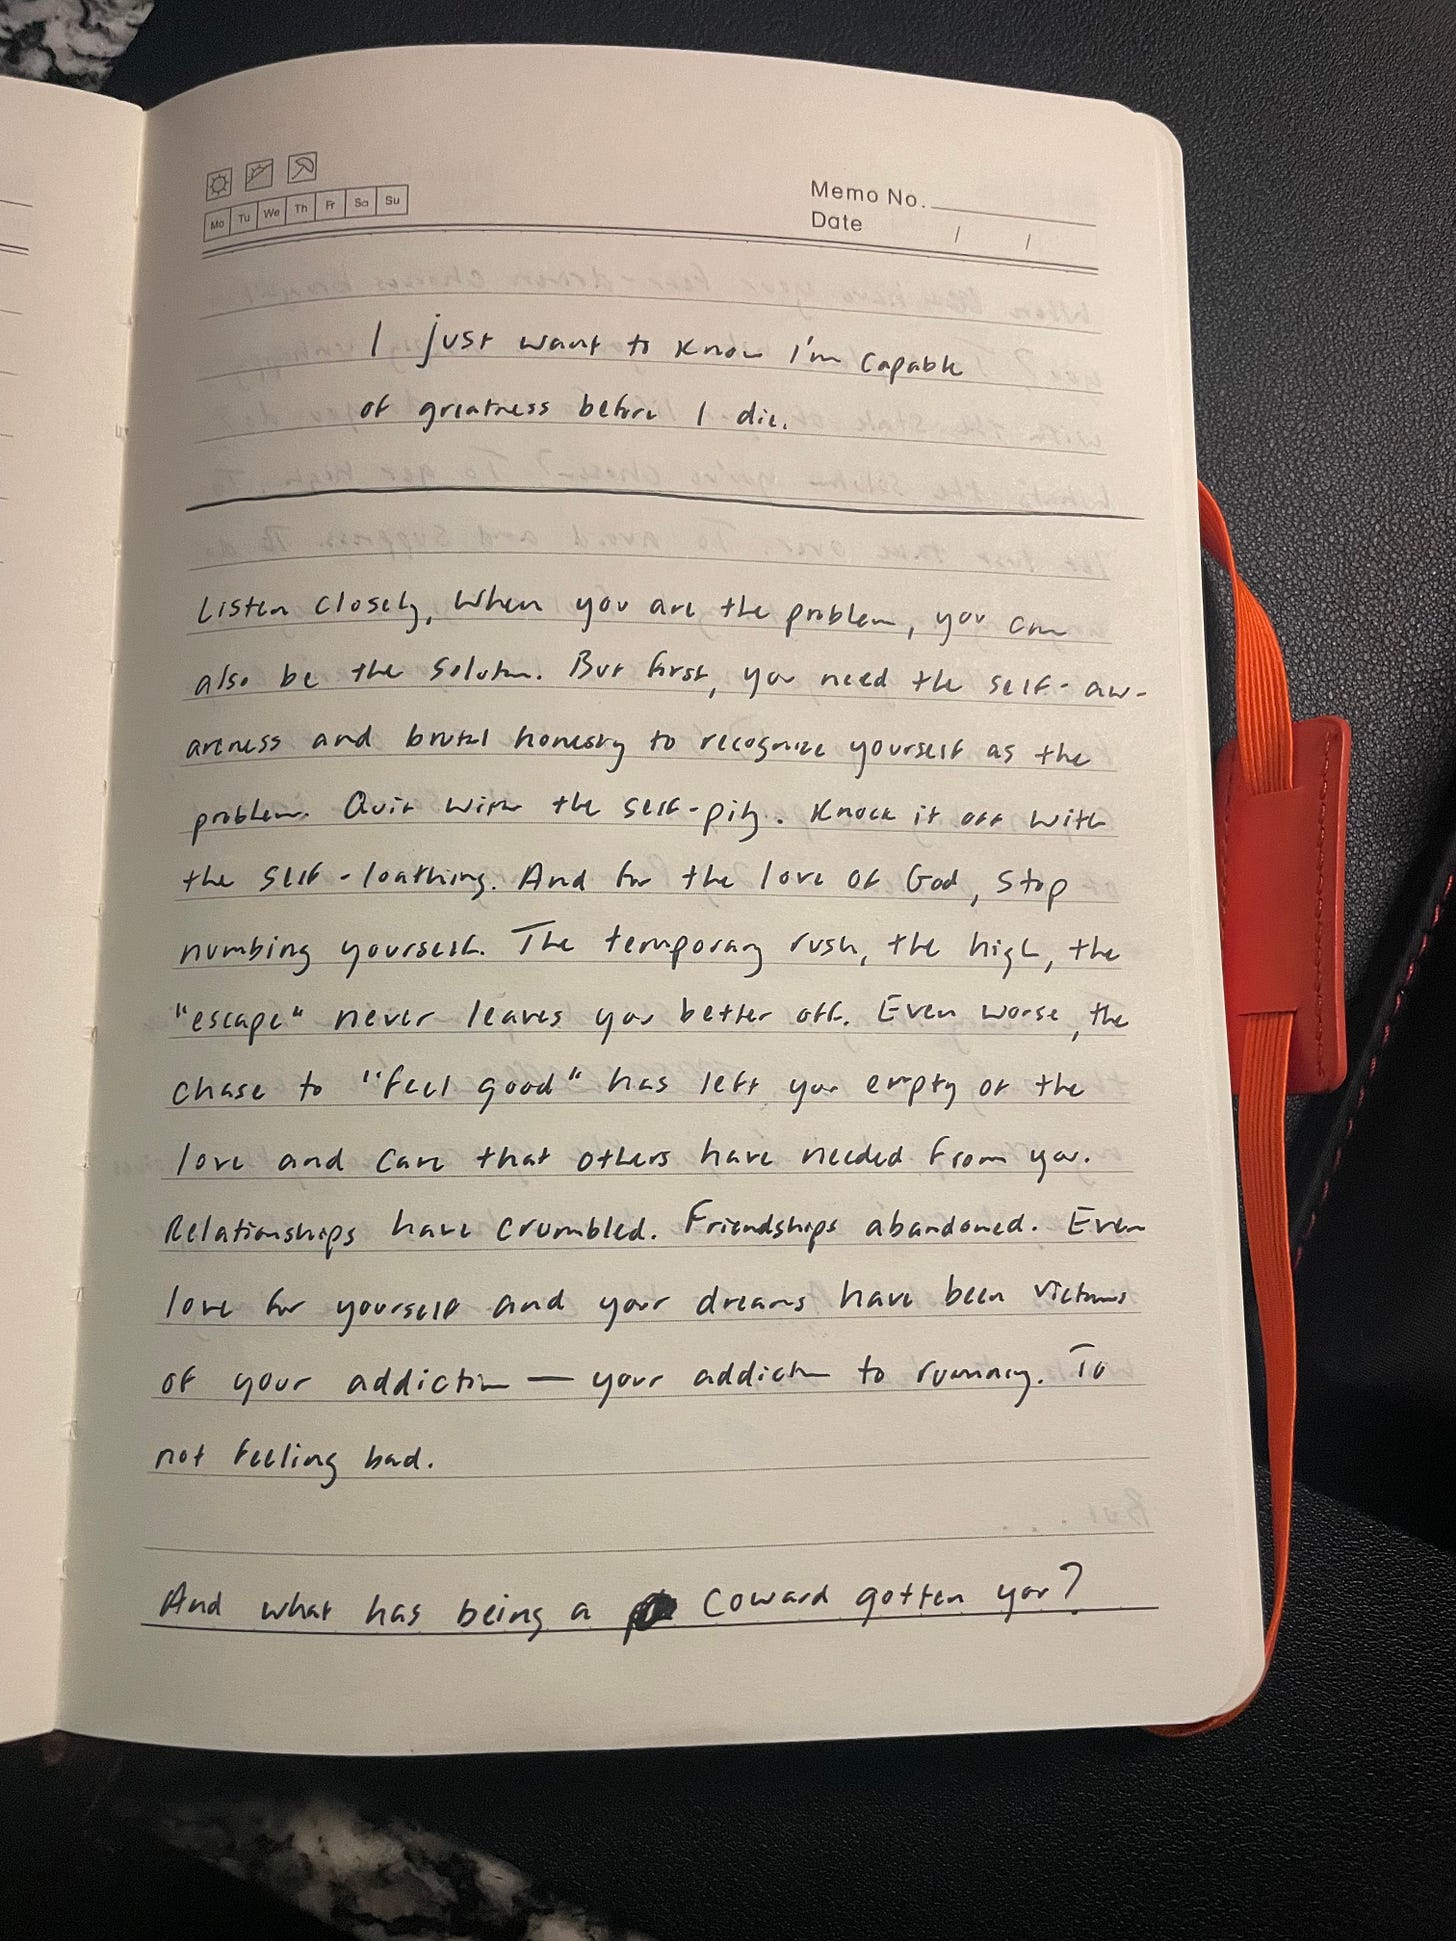 Mo Tu We Th Fr Sa Su
Memo No.
Date / /
I just want to know I'm capable
of greatness before I die.
Listen closely, when you are the problem, you can
also be the solution. But first, you need the self-aw-
areness and brutal honesty to recognize yourself as the
problem. Quit with the self-pity. Knock it off with
the self-loathing. And for the love of God, stop
numbing yourself. The temporary rush, the high, the
"escape" never leaves you better off. Even worse, the
chase to "feel good" has left you empty of the
love and care that others have needed from you.
Relationships have crumbled. Friendships abandoned. Even
love for yourself and your dreams have been victims
of your addiction — your addiction to running. To
not feeling bad.
And what has being a coward gotten you?